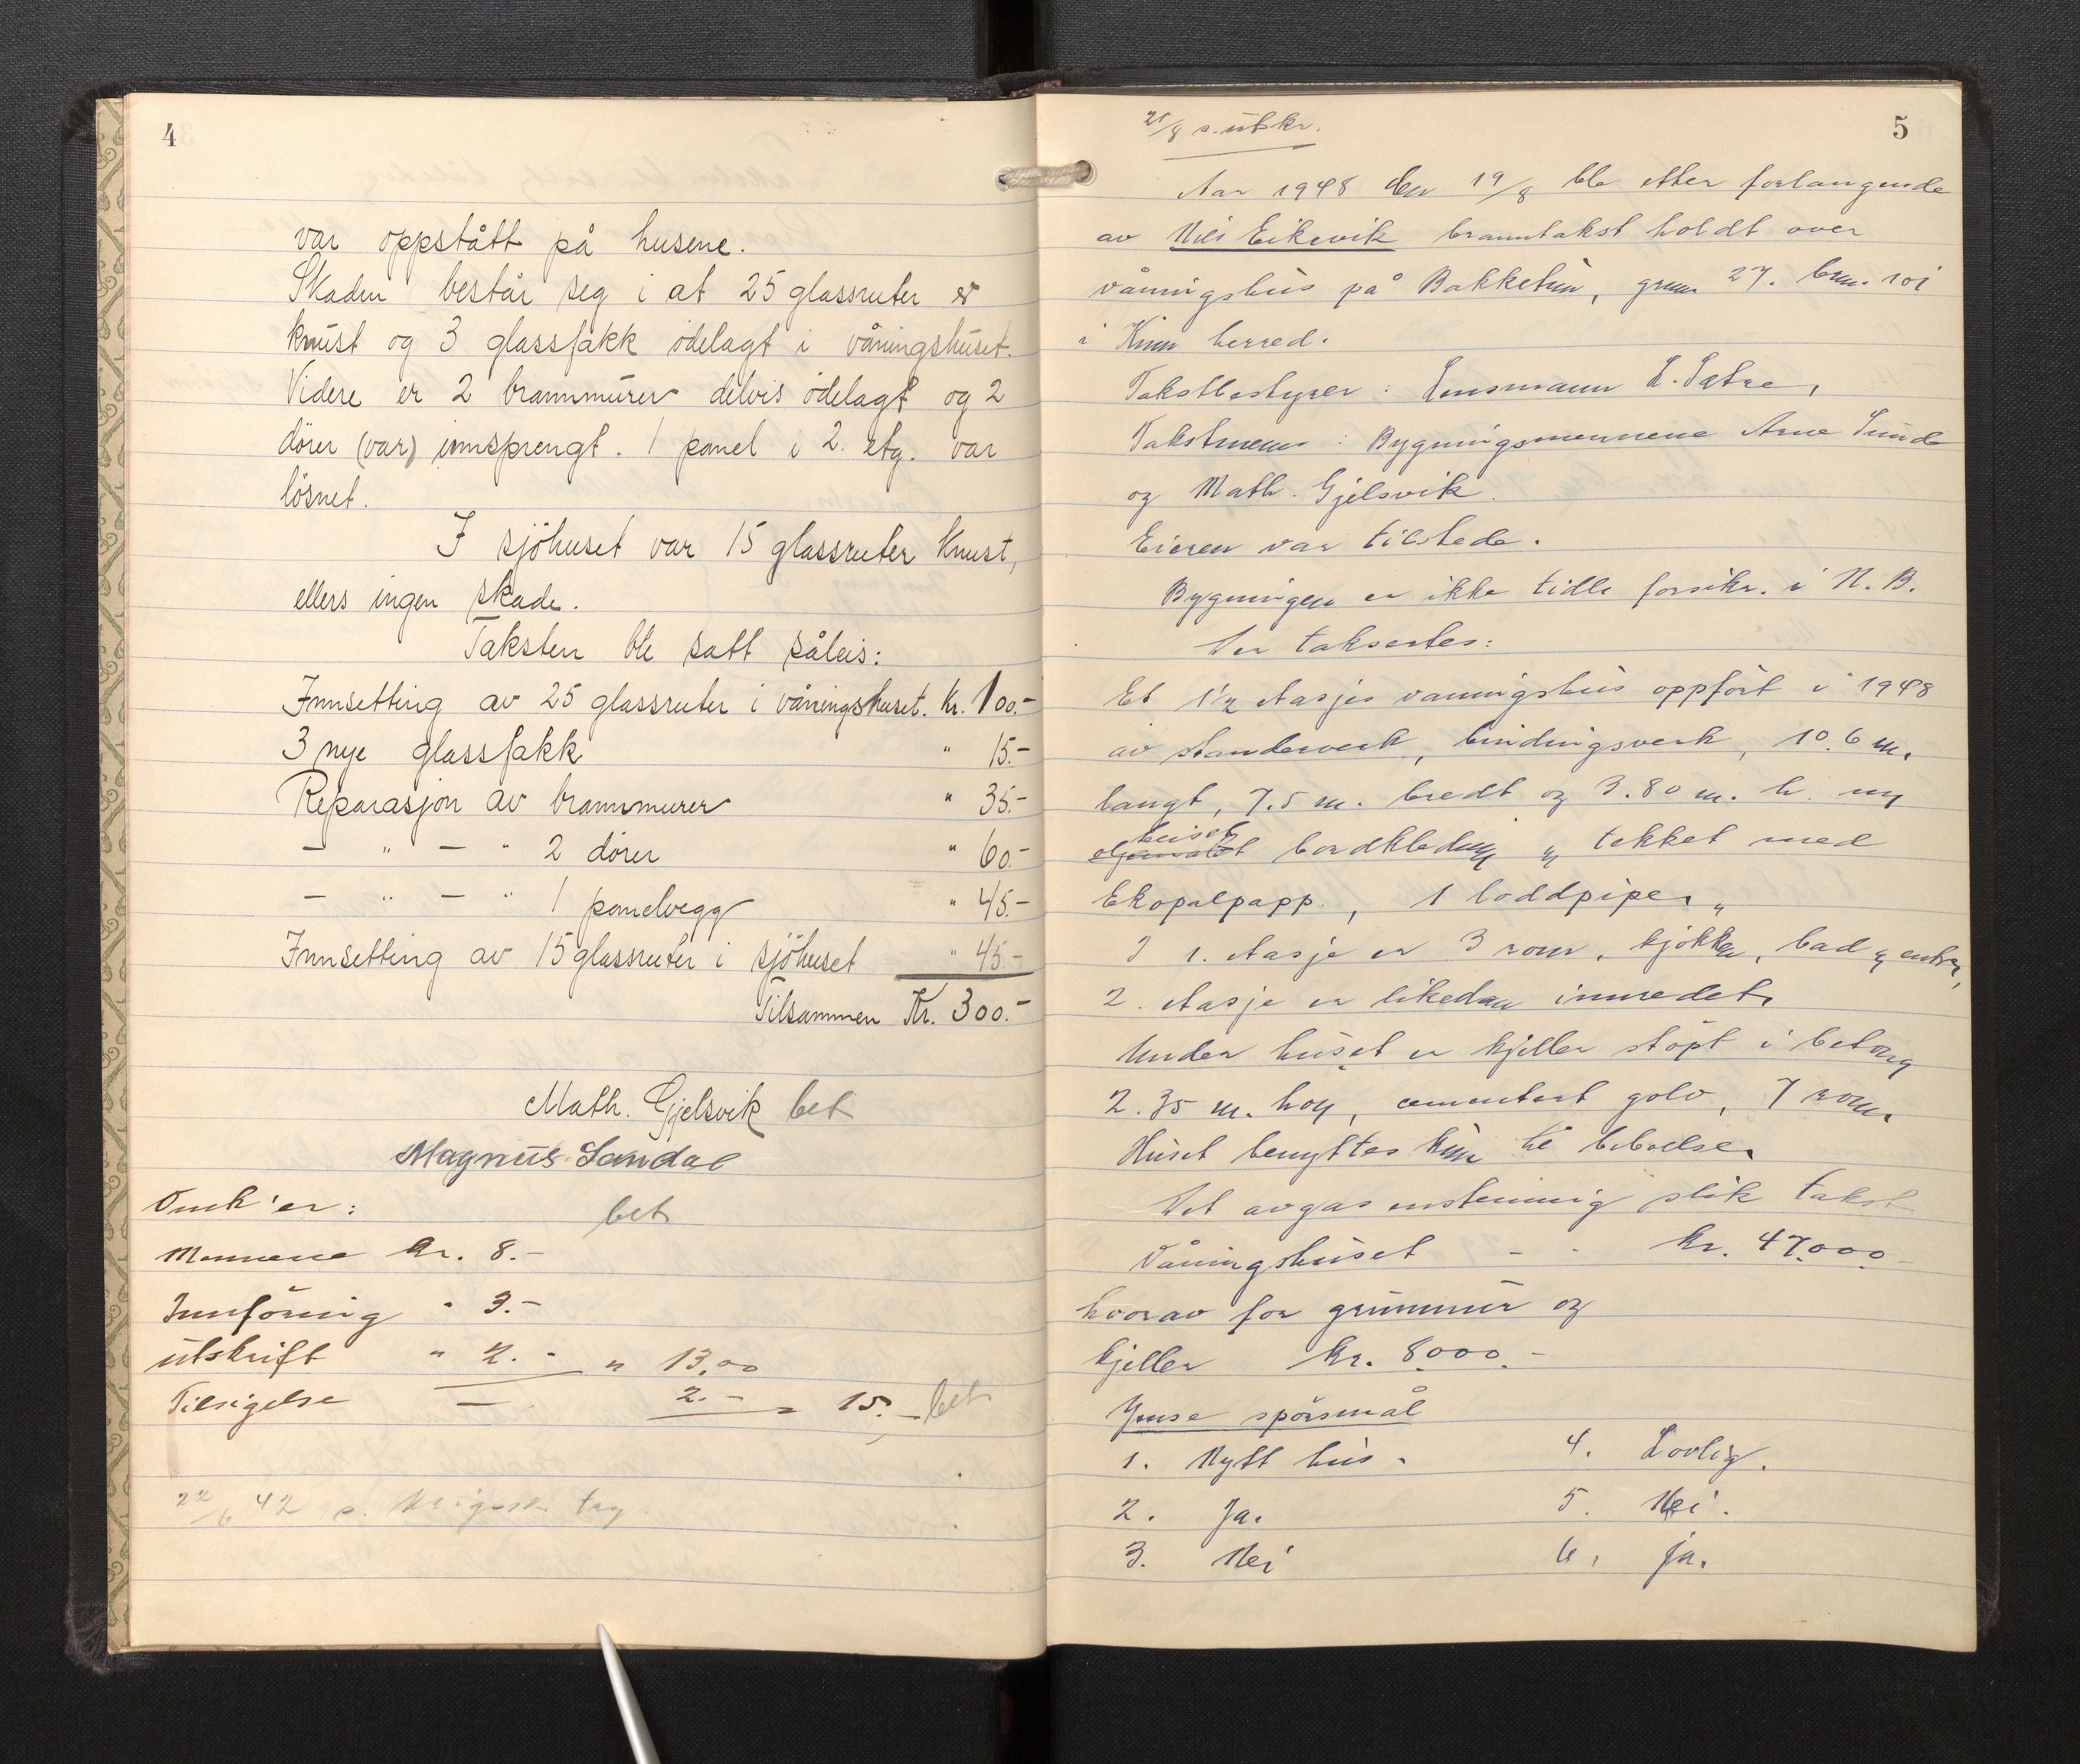 4
var oppstått på husene.
Skaden består seg i at 25 glassruter er
knust og 3 glassfakk ödelagt i våningshuset.
Videre er 2 brannmurer delvis ödelagt og 2
dörer (var) innsprengt. 1 panel i 2. etg. var
lösnet.
I sjöhuset var 15 glassruter knust,
ellers ingen skade.
Taksten ble satt såleis:
Innsetting av 25 glassruter i våningshuset. Kr. 100.-
3 nye glassfakk " 15.-
Reparasjon av brannmurer " 35.-
- " - " 2 dörer " 60.-
- " - " 1 panelvegg " 45.-
Innsetting av 15 glassruter i sjöhuset " 45.-
Tilsammen Kr. 300.-
Math. Gjelsvik bet
Magnus Sandal
Omk'er: bet
Mennene kr. 8.-
Innföring " 3.-
utskrift " 2.- " 13.00
Tilsigelse — 2.- = 15.- bet
22/6 42 s. tag
5
21/8 s. utskr.
Aar 1948 den 19/8 ble etter forlangende
av Nils Eikevik branntakst holdt over
våningshus på Bakketun, grnr. 27. bnr. 101
i Kinn herred.
Takstbestyrer: Lensmann L. Sætre,
Takstmenn: Bygningsmennene Arne Sunde
og Math. Gjelsvik.
Eieren var tilstede.
Bygningen er ikke tidle forsikr. i N. B.
Der taksertes:
Et 1½ etasjes vaningshus oppfört i 1948
av standerverk, bindingsverk, 10.6 m.
langt, 7.5 m. bredt og 3.80 m. h. ny
beiset
oljemalet bordkledning og tekket med
Ekopalpapp., 1 loddpiper,
I 1. etasje er 3 rom, kjökken, bad og entre,
2. etasje er likedan innredet,
Under huset er kjeller stöpt i betong
2.35 m. höy, cementert golv, 7 rom,
Huset benyttes kun til beboelse.
Det avgas enstemmig slik takst
Våningshuset - - kr. 47.000.-
hvorav for grunnmur og
kjeller kr. 8.000.-
Ymse spörsmål
1. Nytt hus. 4. Lovlig.
2. Ja. 5. Nei.
3. Nei 6. ja.